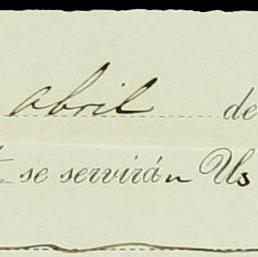 abril de
se servirán Us